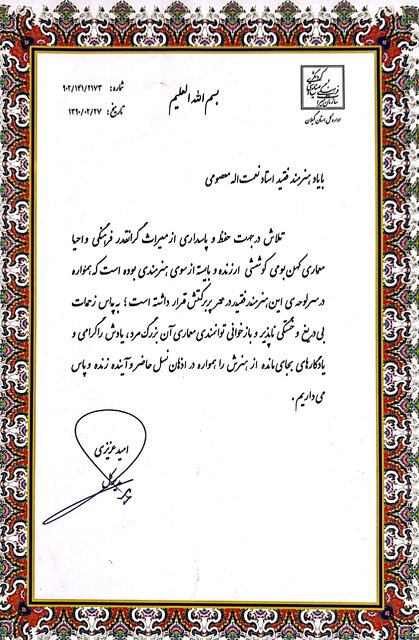 بسم الله العلیم
شماره: ۹۰۲/۱۴۱/۲۱۷۳
تاریخ: ۱۳۹۰/۰۲/۲۷
اداره کل استان گیلان
با یاد هنرمند فقید استاد نعمت اله معصومی
تلاش در جهت حفظ و پاسداری از میراث گرانقدر فرهنگی و احیا
معماری کهن بومی کوششی ارزنده و بایسته از سوی هنرمندی بوده است که همواره
در سرلوحه‌ی این هنرمند فقید در عمر پربرکتش قرار داشته است؛ به پاس زحمات
بی دریغ و خستگی ناپذیر و بازخوانی توانمندی معماری آن بزرگ مرد، یادش را گرامی و
یادگارهای بجای مانده از هنرش را همواره در اذهان نسل حاضر و آینده زنده و پاس
می داریم.
امید عزیزی
مدیر کل